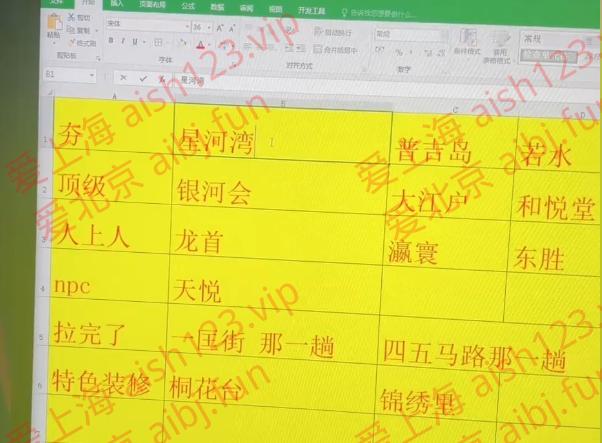 文件 开始 插入 页面布局 公式 数据 审阅 视图 开发工具 告诉我您想要做什么...
剪切
复制
格式刷
粘贴
剪贴板
宋体 36
B I U
字体
自动换行
合并后居中
对齐方式
常规
数字
条件格式
套用
表格格式
常规
B1 星河湾
A B C D
1 夯 星河湾 普吉岛 若水
2 顶级 银河会 大江户 和悦堂
3 人上人 龙首 瀛寰 东胜
4 npc 天悦
5 拉完了 一匡街 那一趟 四五马路那一趟
6 特色装修 桐花台 锦绣里
爱上海 aish123.vip
爱北京 aibj.fun
爱上海 aish123.vip
爱北京 aibj.fun
爱上海 aish123.vip
爱北京 aibj.fun
爱上海 aish123.vip
爱北京 aibj.fun